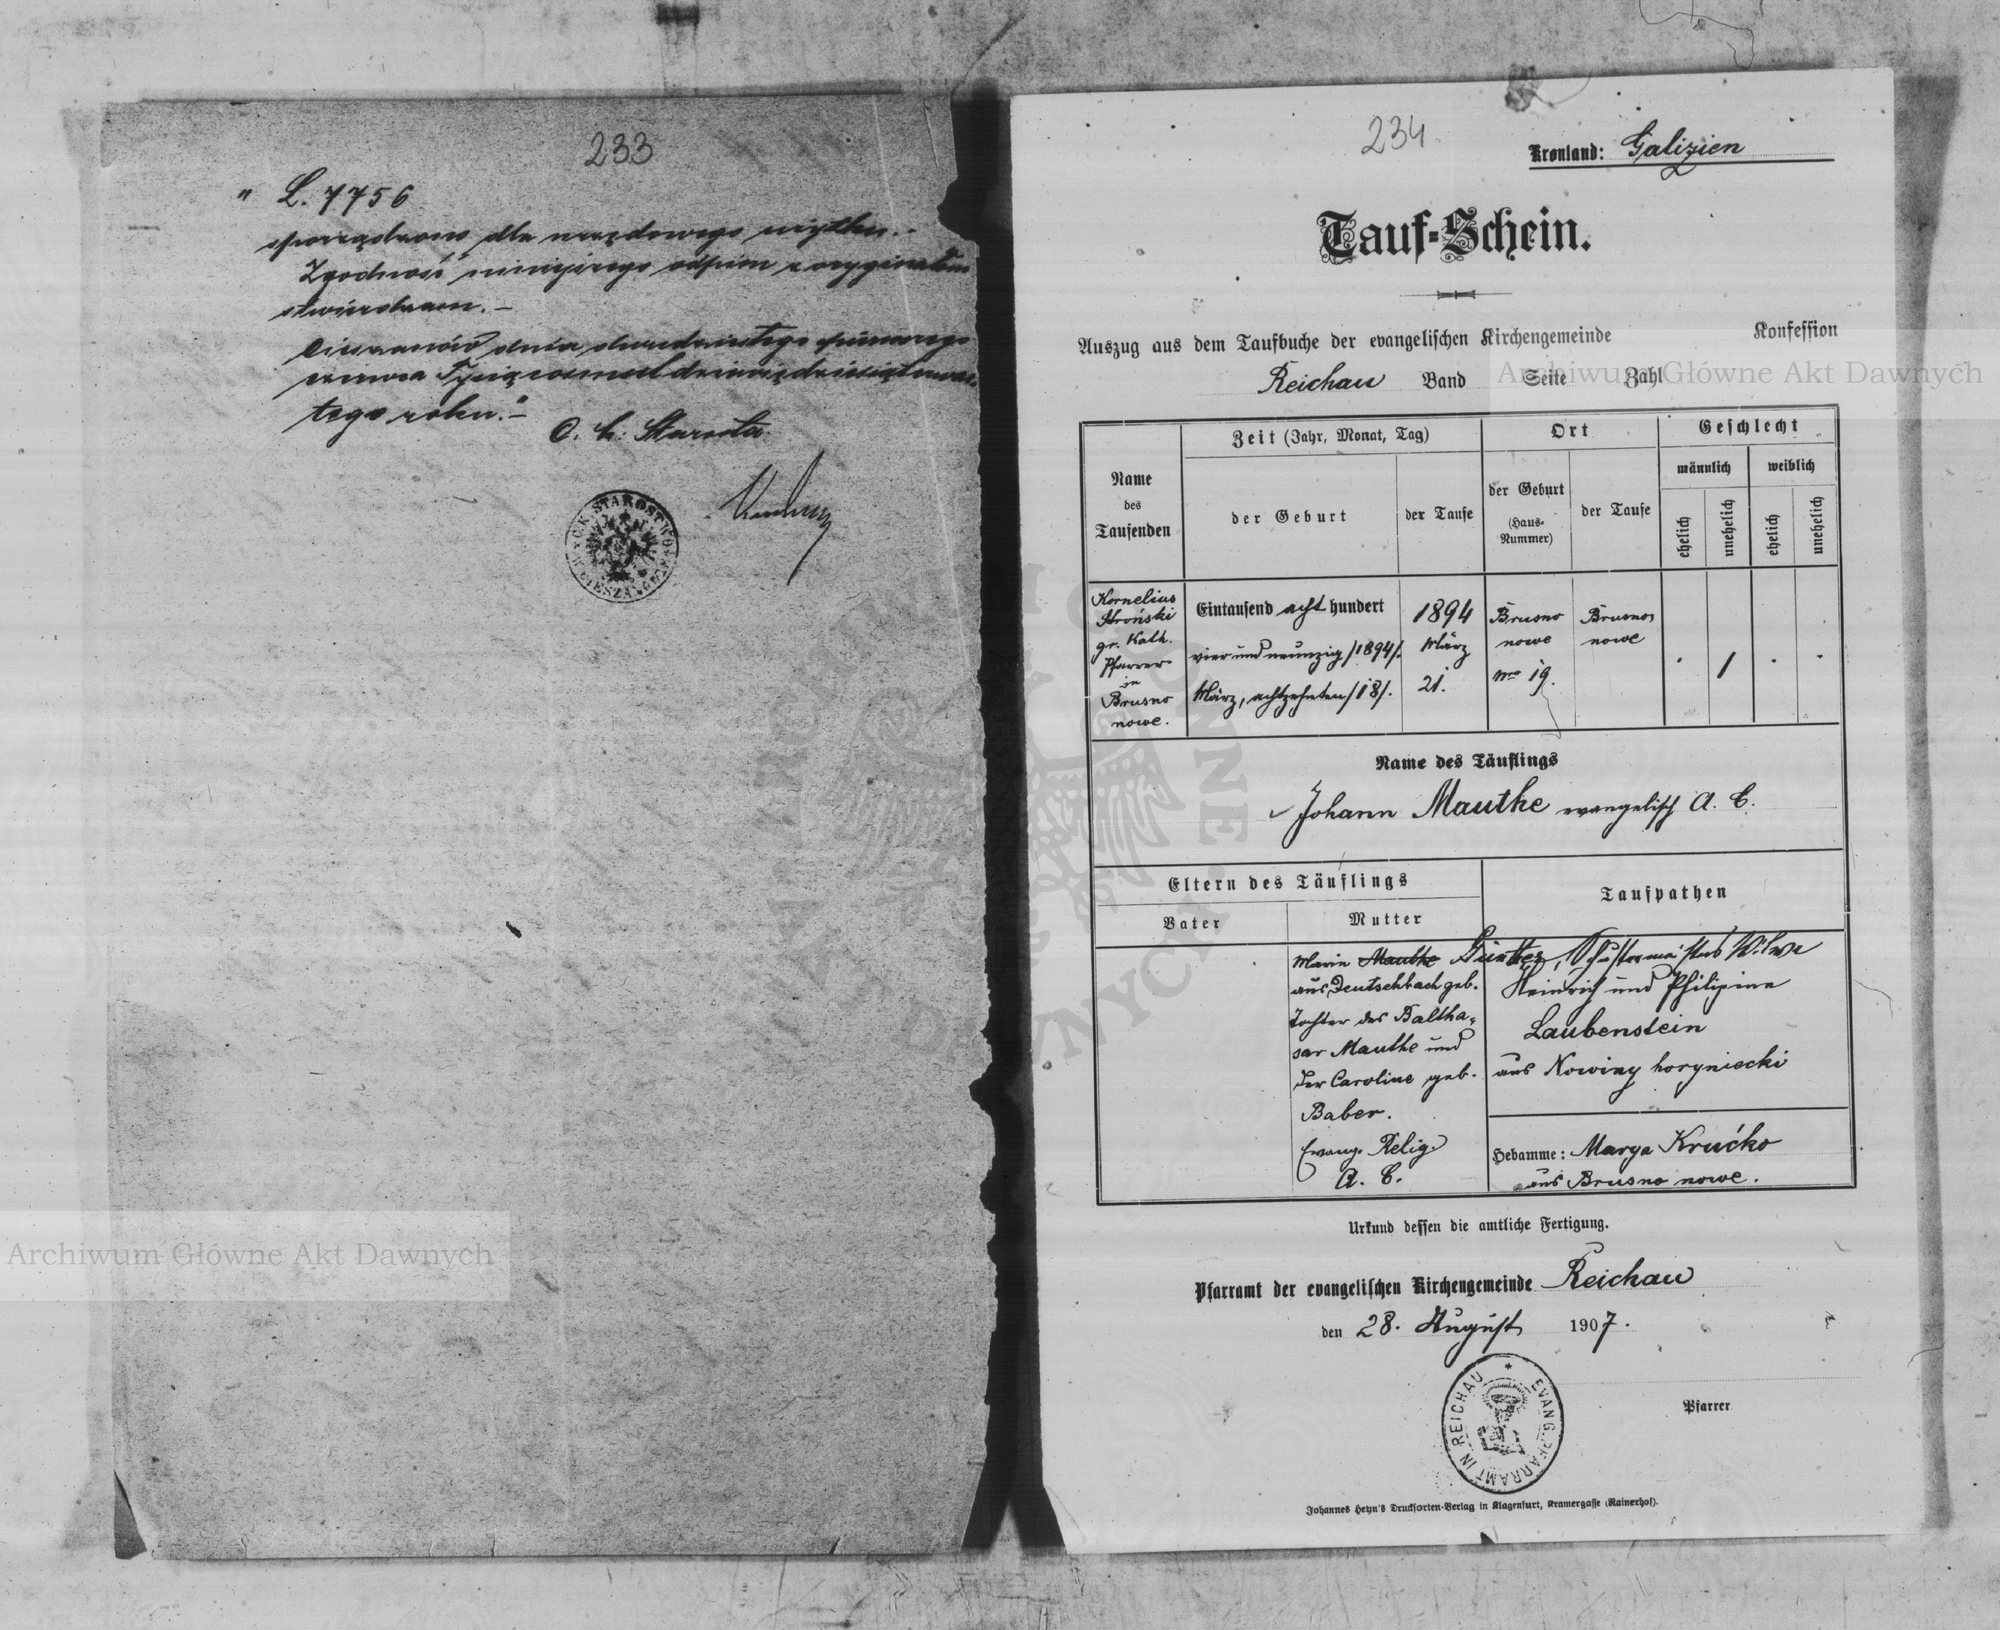 233
" L. 7756
sporządzono dla urzędowego użytku.-
Zgodność niniejszego odpisu z oryginałem
stwierdzam.-
Cieszanów dnia dwudziestego pierwszego
czerwca Tysiąc osmset dziewięćdziesiąt
tego roku."-
C. k. Starosta
C.K. STAROSTWO W CIESZANOWIE
234
Kronland: Galizien
Tauf-Schein.
Auszug aus dem Taufbuche der evangelischen Kirchengemeinde Konfession
Reichau Band Seite Zahl
Name des Taufenden
Zeit (Jahr, Monat, Tag)
der Geburt
der Taufe
Ort
der Geburt (Haus-Nummer)
der Taufe
Geschlecht
männlich
weiblich
ehelich
unehelich
ehelich
unehelich
Kornelius
Stroński
gr. Kath.
Pfarrer
in
Brusno
nowe.
Eintausend acht hundert
vier und neunzig /1894/.
März, achtzehnten /18/.
1894
März
21.
Brusno
nowe
Nro 19.
Brusno
nowe
. 1 . .
Name des Täuflings
Johann Mauthe evangelisch A. C.
Eltern des Täuflings
Vater
Mutter
Marie Mauthe Günther, Schustermeisters Witwe
aus Deutschbach geb.
Tochter des Baltha-
sar Mauthe und
der Caroline geb.
Baber.
Evang. Relig.
A. C.
Taufpathen
Heinrich und Philipine
Laubenstein
aus Nowiny horyniecki
Hebamme: Marya Kručko
aus Brusno nowe.
Urkund dessen die amtliche Fertigung.
Pfarramt der evangelischen Kirchengemeinde Reichau
den 28. August 1907.
EVANG. PFARRAMT IN REICHAU
Pfarrer
Johannes Heyn's Drucksorten-Verlag in Klagenfurt, Kramergasse (Rainerhof).
Archiwum Główne Akt Dawnych
Archiwum Główne Akt Dawnych
ARCHIWUM GŁÓWNE AKT DAWNYCH